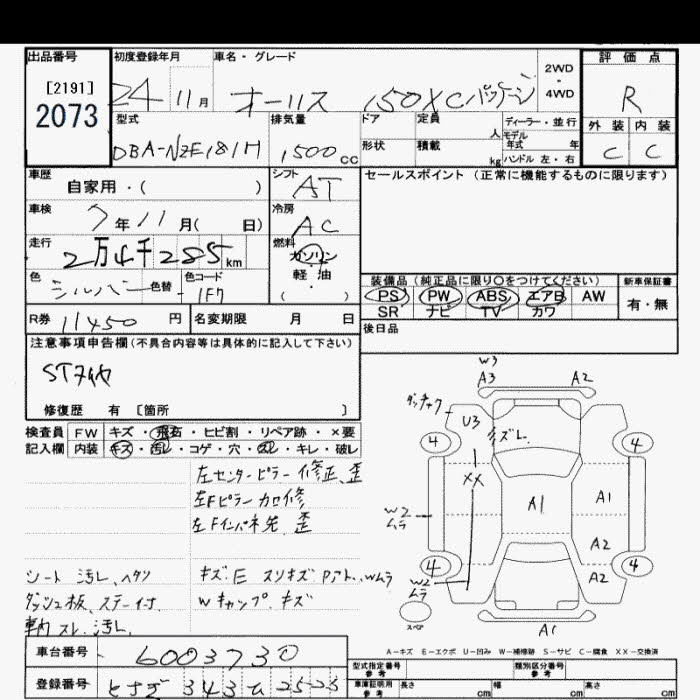 出品番号 初度登録年月 車名・グレード 2WD・4WD 評価点
[2191]
2073 24 11月 オーリス 150X Cパッケージ R
型式 排気量 ドア 定員 人 ディーラー・並行 外装 内装
DBA-NZE181H 1500cc 形状 積載 kg モデル年式 年 ハンドル 左・右 C C
車歴 自家用・( ) シフト AT セールスポイント(正常に機能するものに限ります)
車検 7年11月( 日) 冷房 AC
走行 2万4千285km 燃料 ガソリン 軽・油 ( )
色 シルバー 色替 色コード 1F7 装備品(純正品に限り○をつけてください) 新車保証書
PS PW ABS エアB AW 有・無
SR ナビ TV カワ
R券 11450円 名変期限 月 日 後日品
注意事項申告欄(不具合内容等は具体的に記入して下さい)
修復歴 有 [箇所 ]
検査員 FW キズ・飛石・ヒビ割・リペア跡・×要
記入欄 内装 キズ・汚レ・コゲ・穴・スレ・キレ・破レ
左センターピラー修正、歪
左Fピラー加修
左Fインパネ先 歪
シート 汚レ、ヘタリ キズ E スリキズ Pアト、Wムラ
ダッシュ板、ステー Wキャップ キズ
車内スレ、汚レ、
W3
A3 A2
U3 キズレ
4 4
XX
A1 A1
W2 ムラ
A2
4 A2 4
W2 ムラ
スペア
A1
A-キズ E-エクボ U-凹み W-補修跡 S-サビ C-腐食 XX-交換済
車台番号 6003730 型式指定番号 参考 類別区分番号 参考
登録番号 343 25-25 車庫証明用 参考 長さ cm 幅 cm 高さ cm